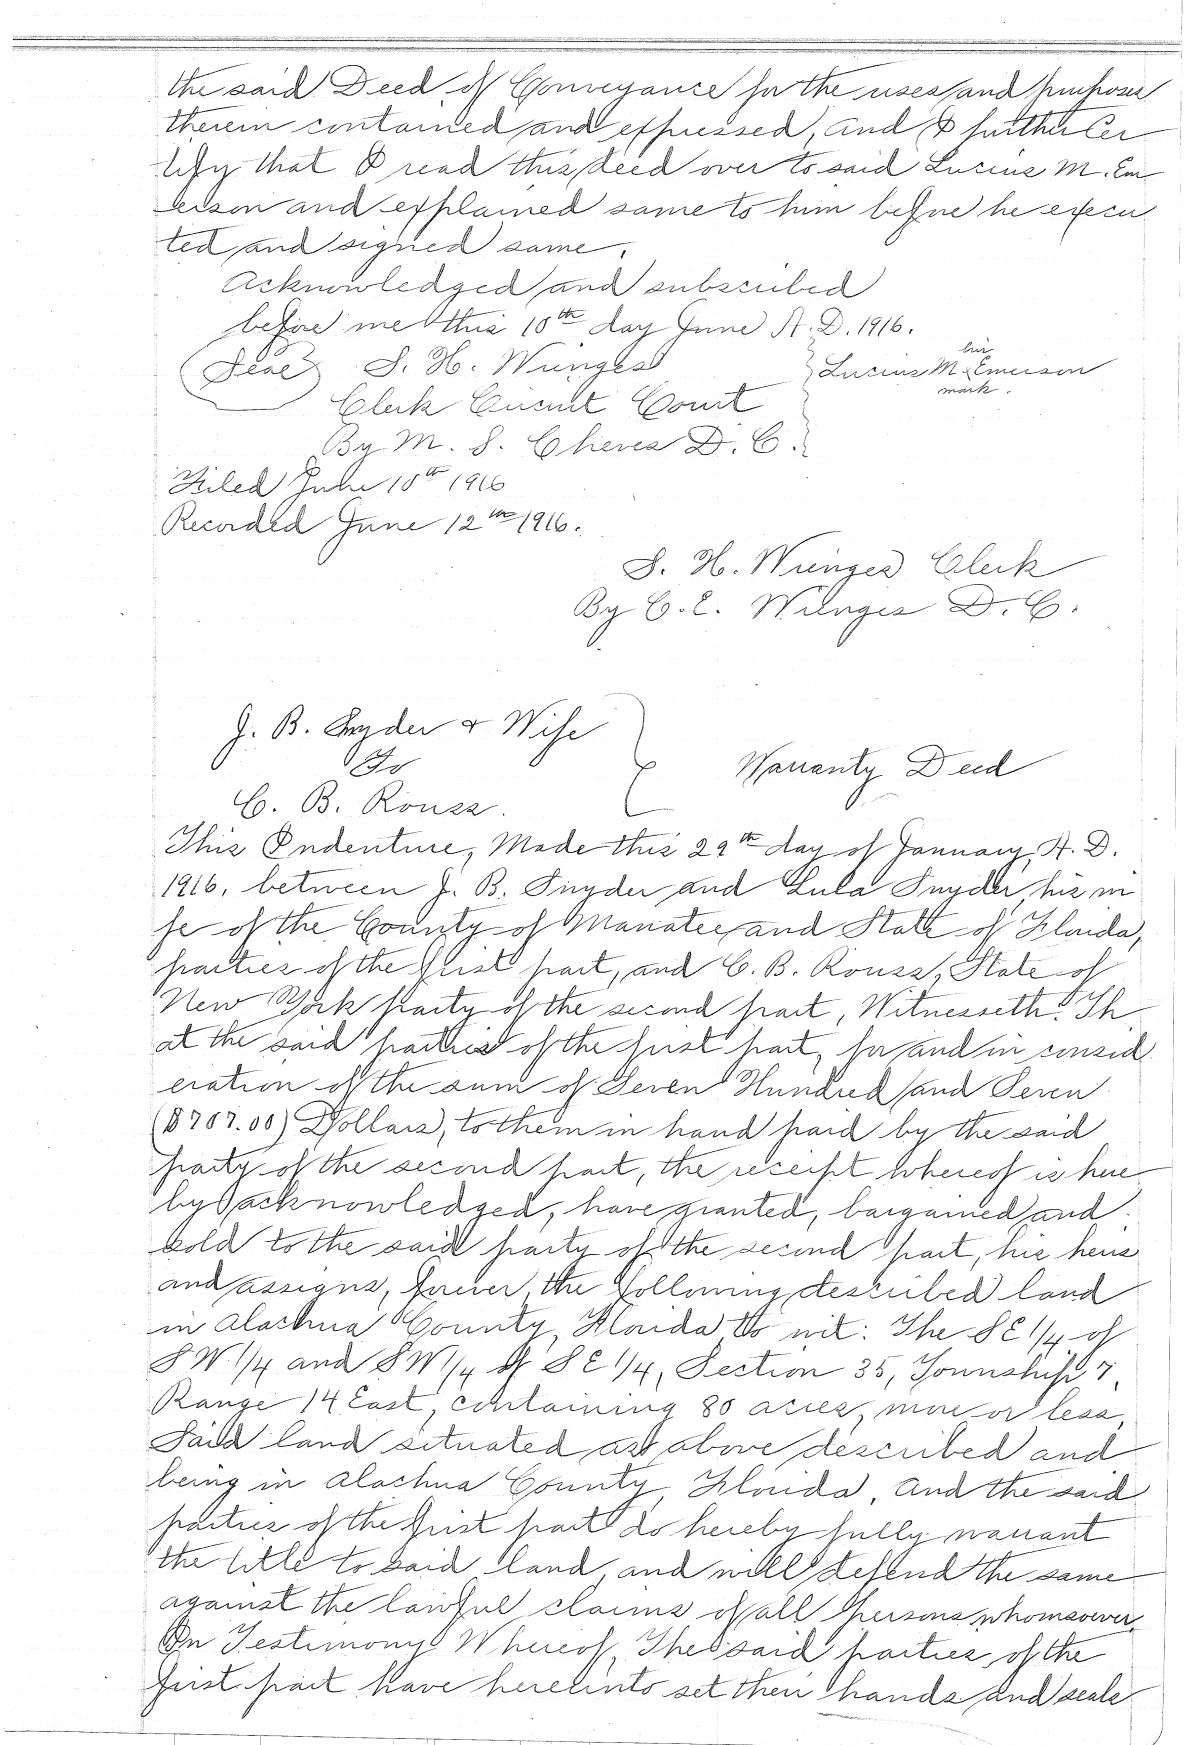 the said Deed of Conveyance for the uses and purposes
therein contained and expressed, and I further Cer
tify that I read this deed over to said Lucius M. Em
erson and explained same to him before he execu
ted and signed same.
Acknowledged and subscribed
before me this 10th day June A. D. 1916.
his
(Seal) S. H. Wienges } Lucius M. x Emerson
mark.
Clerk Circuit Court
By M. S. Cheves D. C.
Filed June 10th 1916
Recorded June 12th 1916.
S. H. Wienges Clerk
By C. E. Wienges D. C.
J. B. Snyder & Wife
To } Warranty Deed
C. B. Rouss.
This Indenture, Made this 29th day of January, A. D.
1916, between J. B. Snyder and Lula Snyder, his wi
fe of the County of Manatee and State of Florida,
parties of the first part, and C. B. Rouss, State of
New York party of the second part, Witnesseth: Th
at the said parties of the first part, for and in consid
eration of the sum of Seven Hundred and Seven
($707.00) Dollars, to them in hand paid by the said
party of the second part, the receipt whereof is here
by acknowledged, have granted, bargained and
sold to the said party of the second part, his heirs
and assigns, forever, the following described land
in Alachua County, Florida, to wit: The SE 1/4 of
SW 1/4 and SW 1/4 of SE 1/4, Section 35, Township 7,
Range 14 East, containing 80 acres, more or less,
Said land situated as above described and
being in Alachua County, Florida, and the said
parties of the first part do hereby fully warrant
the title to said land, and will defend the same
against the lawful claims of all persons whomsoever.
In Testimony Whereof, The said parties of the
first part have hereunto set their hands and seals